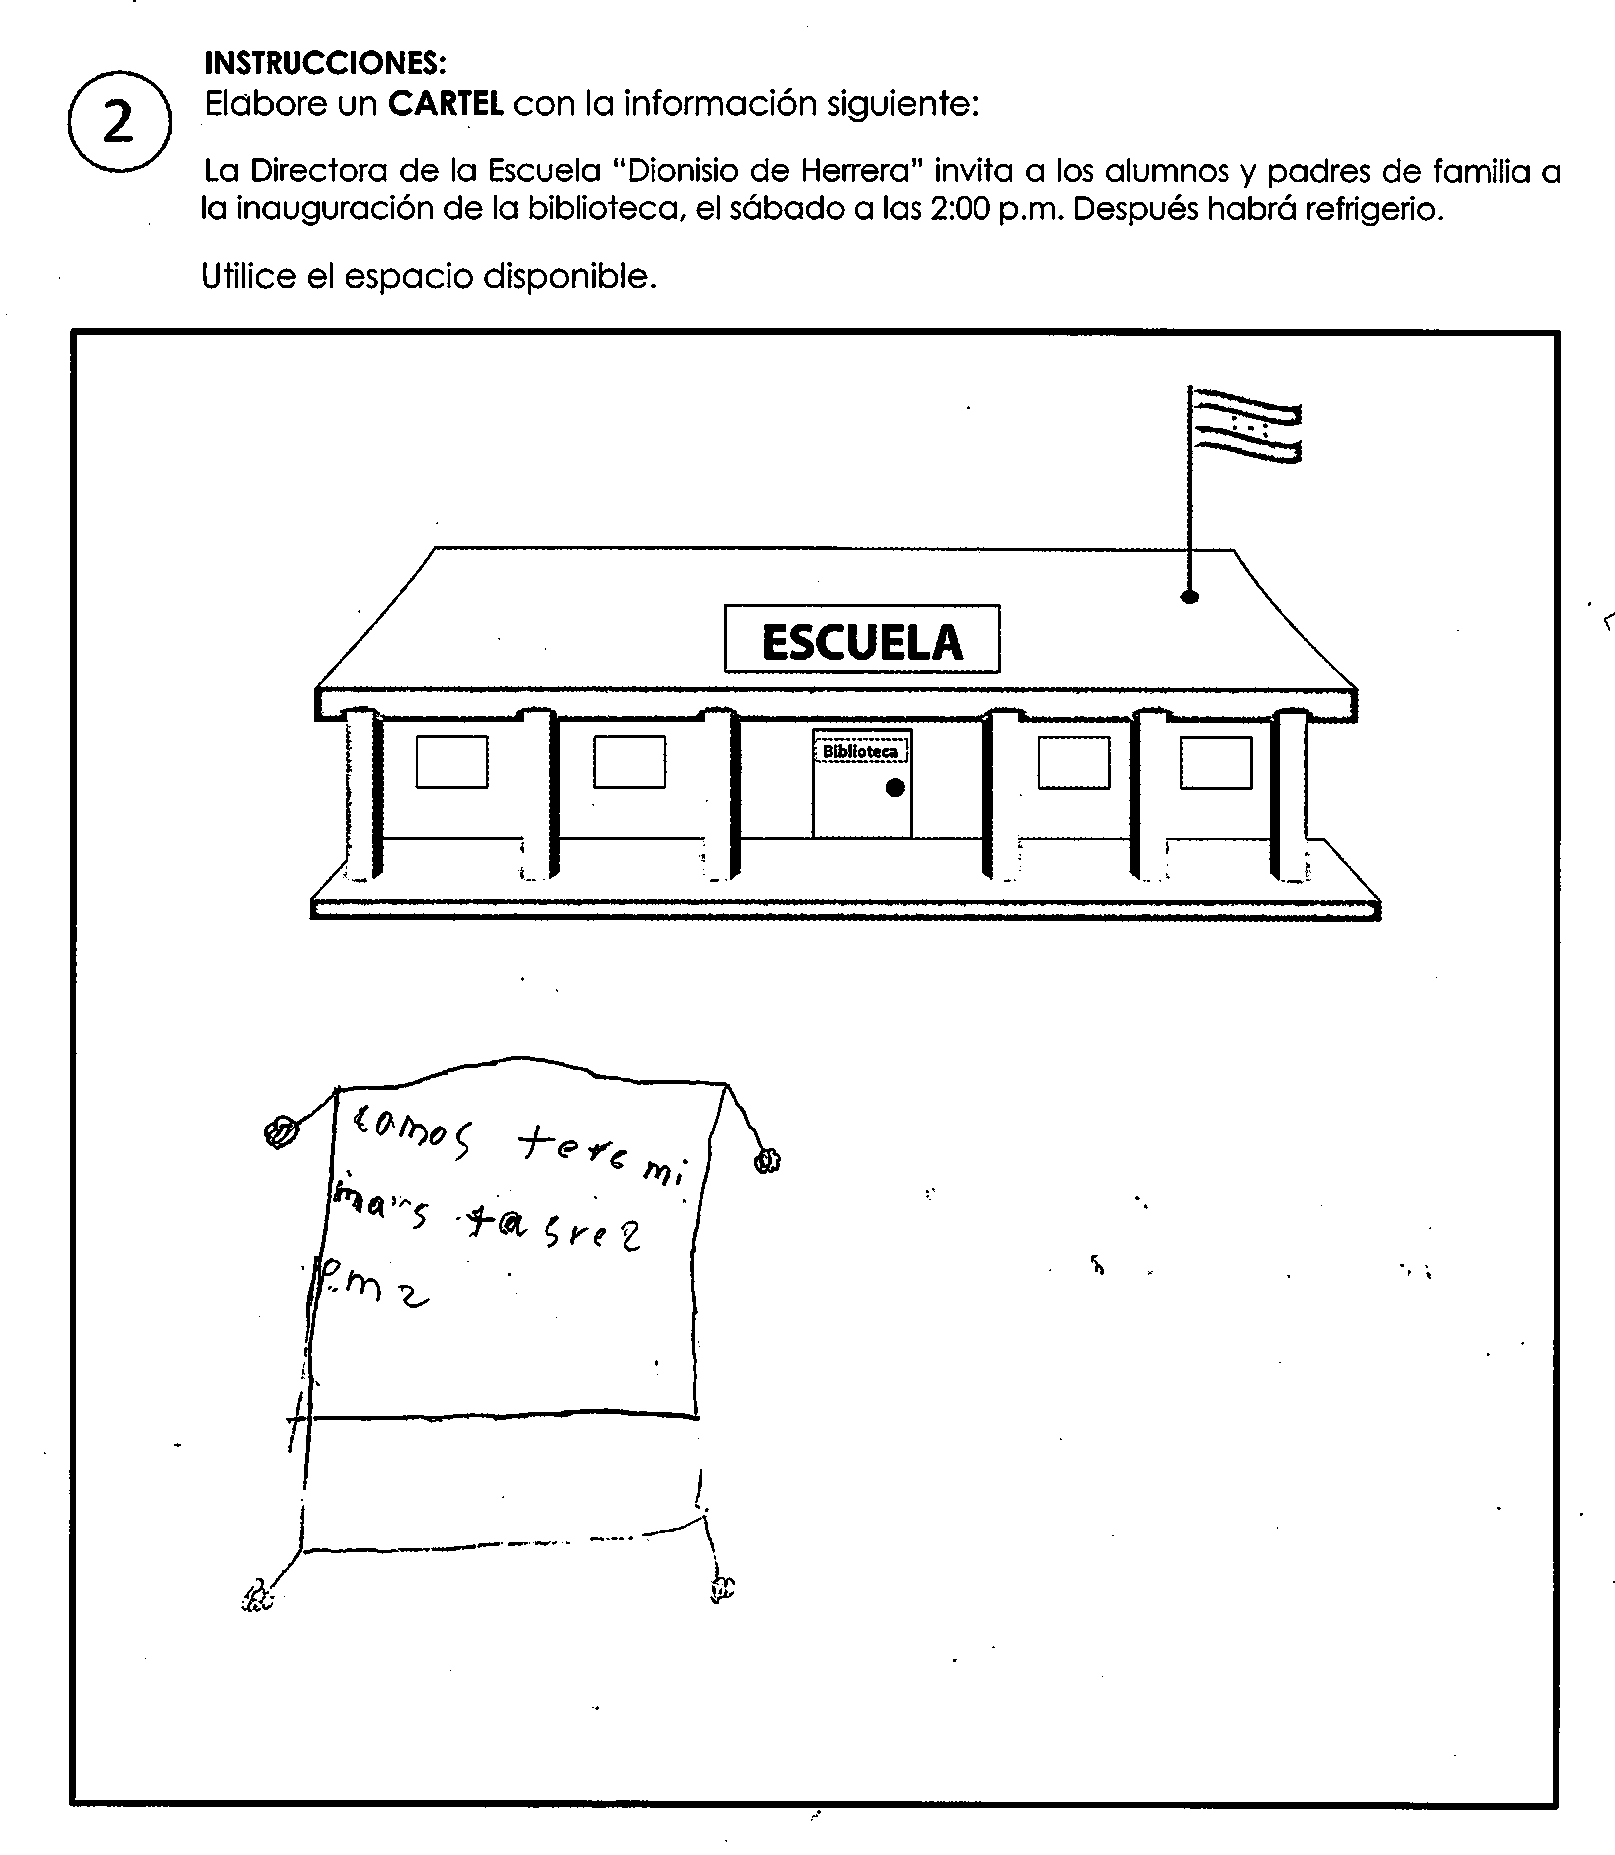 2
INSTRUCCIONES:
Elabore un CARTEL con la información siguiente:
La Directora de la Escuela “Dionisio de Herrera” invita a los alumnos y padres de familia a
la inauguración de la biblioteca, el sábado a las 2:00 p.m. Después habrá refrigerio.
Utilice el espacio disponible.
ESCUELA
Biblioteca
camos tere mi
mars tasre 2
p.m 2